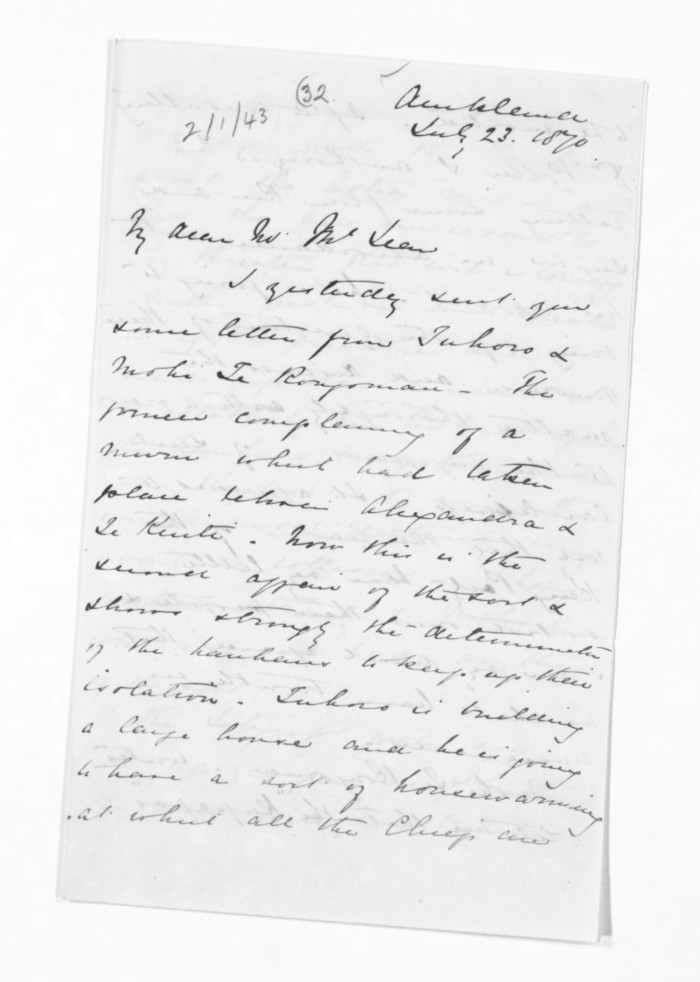 32.
2/1/43
Auckland
July 23. 1870.
My dear Mr. McLean
I yesterday sent you
some letters from Tukoro &
Mohi Te Rongomau - The
former complaining of a
muru which had taken
place between Alexandra &
Te Kuiti. Now this is the
second affair of the sort &
shows strongly the determination
of the hauhaus to keep up their
isolation. Tukoro is building
a large house and he is going
to have a sort of housewarming
at which all the Chiefs are